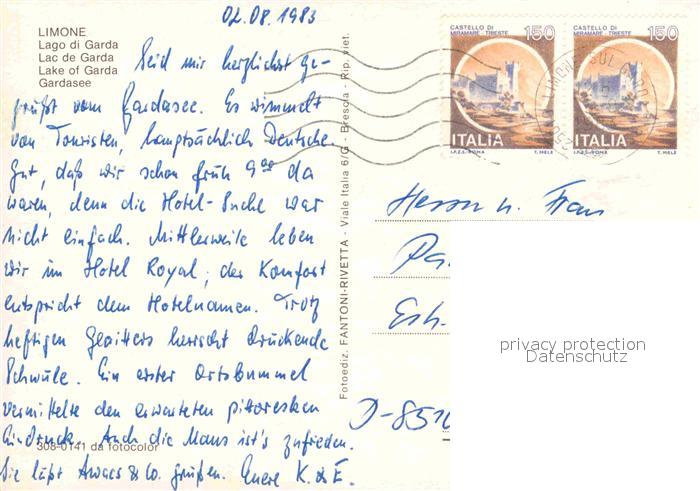 02.08.1983
LIMONE
Lago di Garda
Lac de Garda
Lake of Garda
Gardasee
Seid mir herzlichst ge-
grüßt vom Gardasee. Es wimmelt
von Touristen, hauptsächlich Deutsche.
Gut, daß wir schon früh 9⁰⁰ da
waren, denn die Hotel-Suche war
nicht einfach. Mittlerweile leben
wir im Hotel Royal; der Komfort
entspricht dem Hotelnamen. Trotz
heftigen Gewitters herrscht drückende
Schwüle. Ein erster Ortsbummel
vermittelte den erwarteten pittoresken
Eindruck. Auch die Maus ist's zufrieden.
Sie läßt & Co. grüßen. Euere K. & E.
308-0141 da fotocolor
Fotoediz. FANTONI-RIVETTA - Viale Italia 6/G - Brescia - Rip. viet.
CASTELLO DI
MIRAMARE - TRIESTE
150
ITALIA
I.P.Z.S.-ROMA T. MELE
CASTELLO DI
MIRAMARE - TRIESTE
150
ITALIA
I.P.Z.S.-ROMA T. MELE
Herrn u. Frau
D-8510
privacy protection
Datenschutz